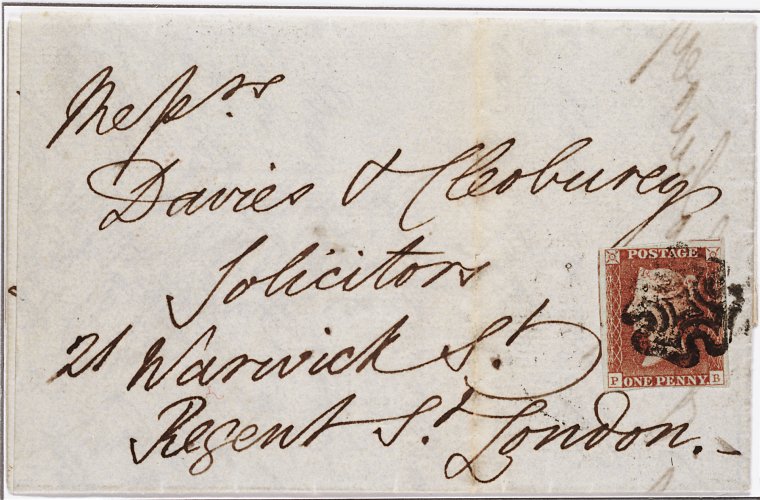 Messrs
Davies & Cleoburey
Solicitors
21 Warwick St.
Regent St. London.
POSTAGE
P ONE PENNY B